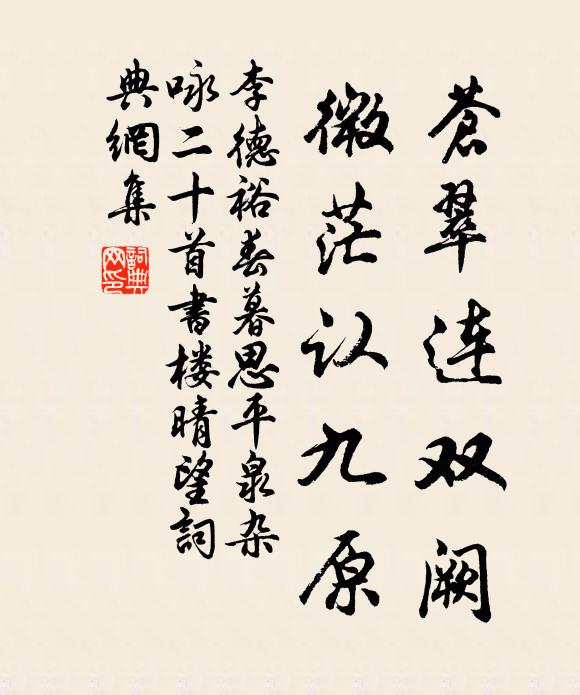 苍翠连双阙
微茫认九原
李德裕春暮思平泉杂
咏二十首書楼晴望詞
典網集
詞典
网印